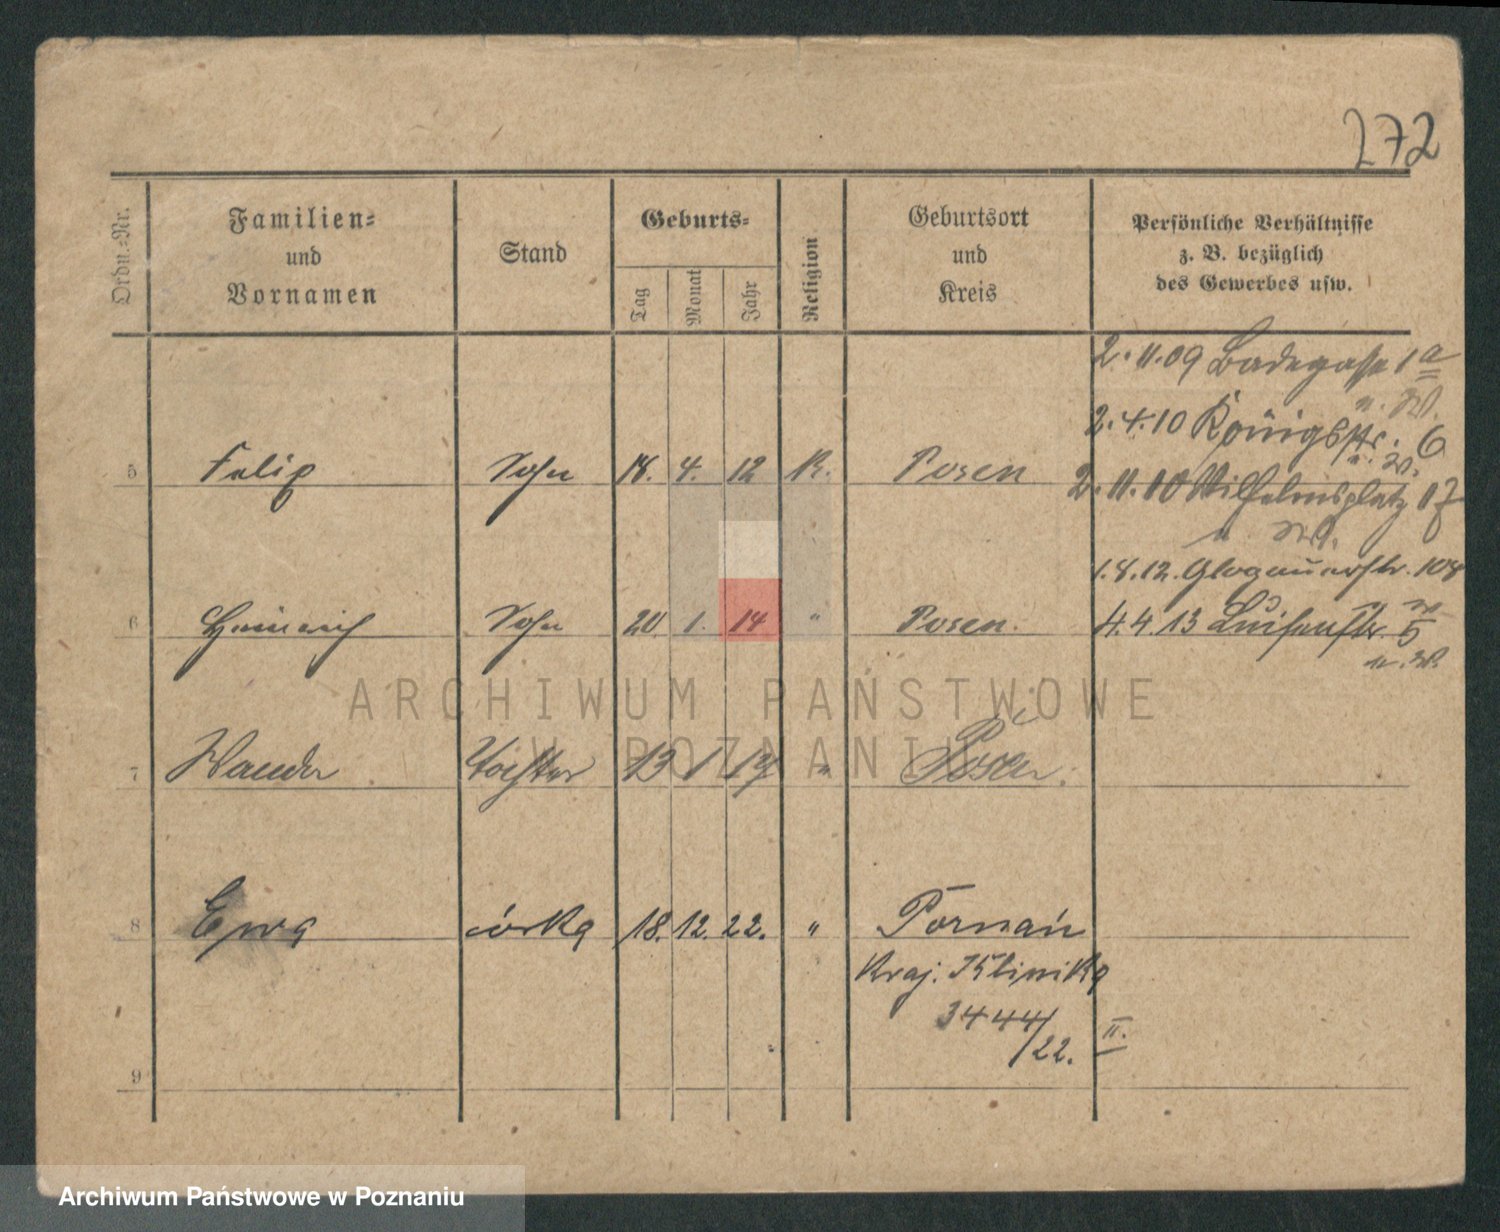 272
Ordn.-Nr.
Familien-
und
Vornamen
Stand
Geburts-
Tag
Monat
Jahr
Religion
Geburtsort
und
Kreis
Persönliche Verhältnisse
z. B. bezüglich
des Gewerbes usw.
2.11.09 Badegasse 1a
2.4.10 Königstr. 6
2.11.10 Wilhelmsplatz 17
1.8.12. Glogauerstr. 108
4.4.13 Luisenstr. 5
5 Felix Sohn 18. 4. 12 K. Posen
6 Heinrich Sohn 20 1. 14 " Posen.
7 Wanda Tochter 13 1 19 " Posen.
8 Ewa córka 18. 12. 22. " Poznań
Kraj. Klinika
3444/22. II.
9
ARCHIWUM PAŃSTWOWE
W POZNANIU
Archiwum Państwowe w Poznaniu